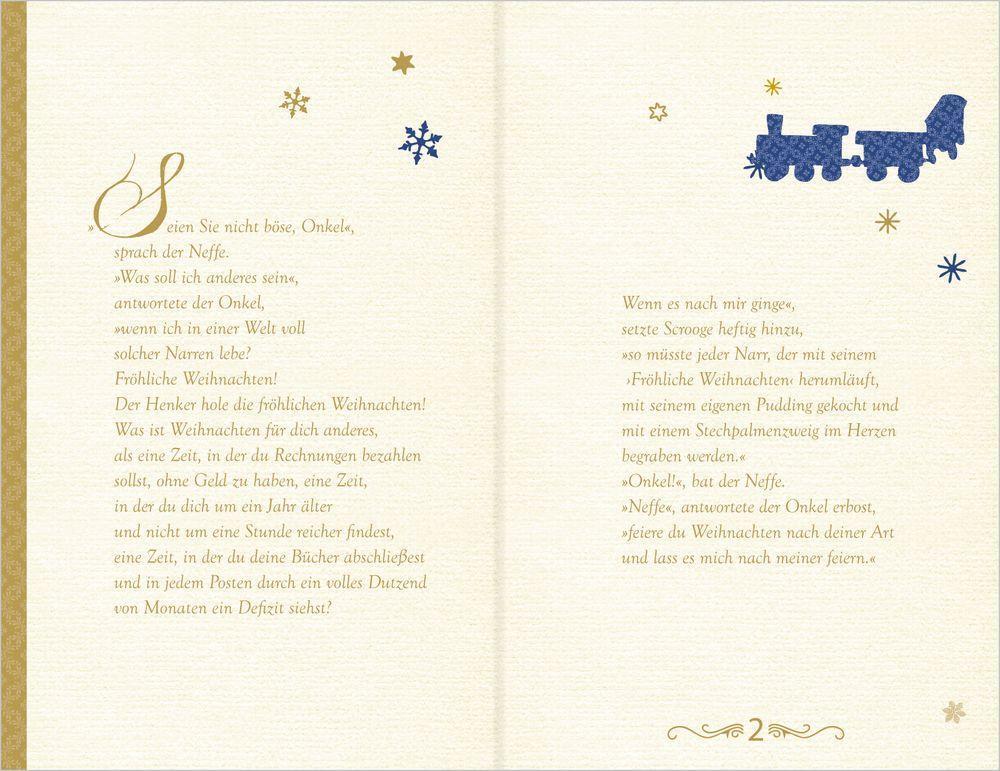 »Seien Sie nicht böse, Onkel«,
sprach der Neffe.
»Was soll ich anderes sein«,
antwortete der Onkel,
»wenn ich in einer Welt voll
solcher Narren lebe?
Fröhliche Weihnachten!
Der Henker hole die fröhlichen Weihnachten!
Was ist Weihnachten für dich anderes,
als eine Zeit, in der du Rechnungen bezahlen
sollst, ohne Geld zu haben, eine Zeit,
in der du dich um ein Jahr älter
und nicht um eine Stunde reicher findest,
eine Zeit, in der du deine Bücher abschließest
und in jedem Posten durch ein volles Dutzend
von Monaten ein Defizit siehst?
Wenn es nach mir ginge«,
setzte Scrooge heftig hinzu,
»so müsste jeder Narr, der mit seinem
›Fröhliche Weihnachten‹ herumläuft,
mit seinem eigenen Pudding gekocht und
mit einem Stechpalmenzweig im Herzen
begraben werden.«
»Onkel!«, bat der Neffe.
»Neffe«, antwortete der Onkel erbost,
»feiere du Weihnachten nach deiner Art
und lass es mich nach meiner feiern.«
2